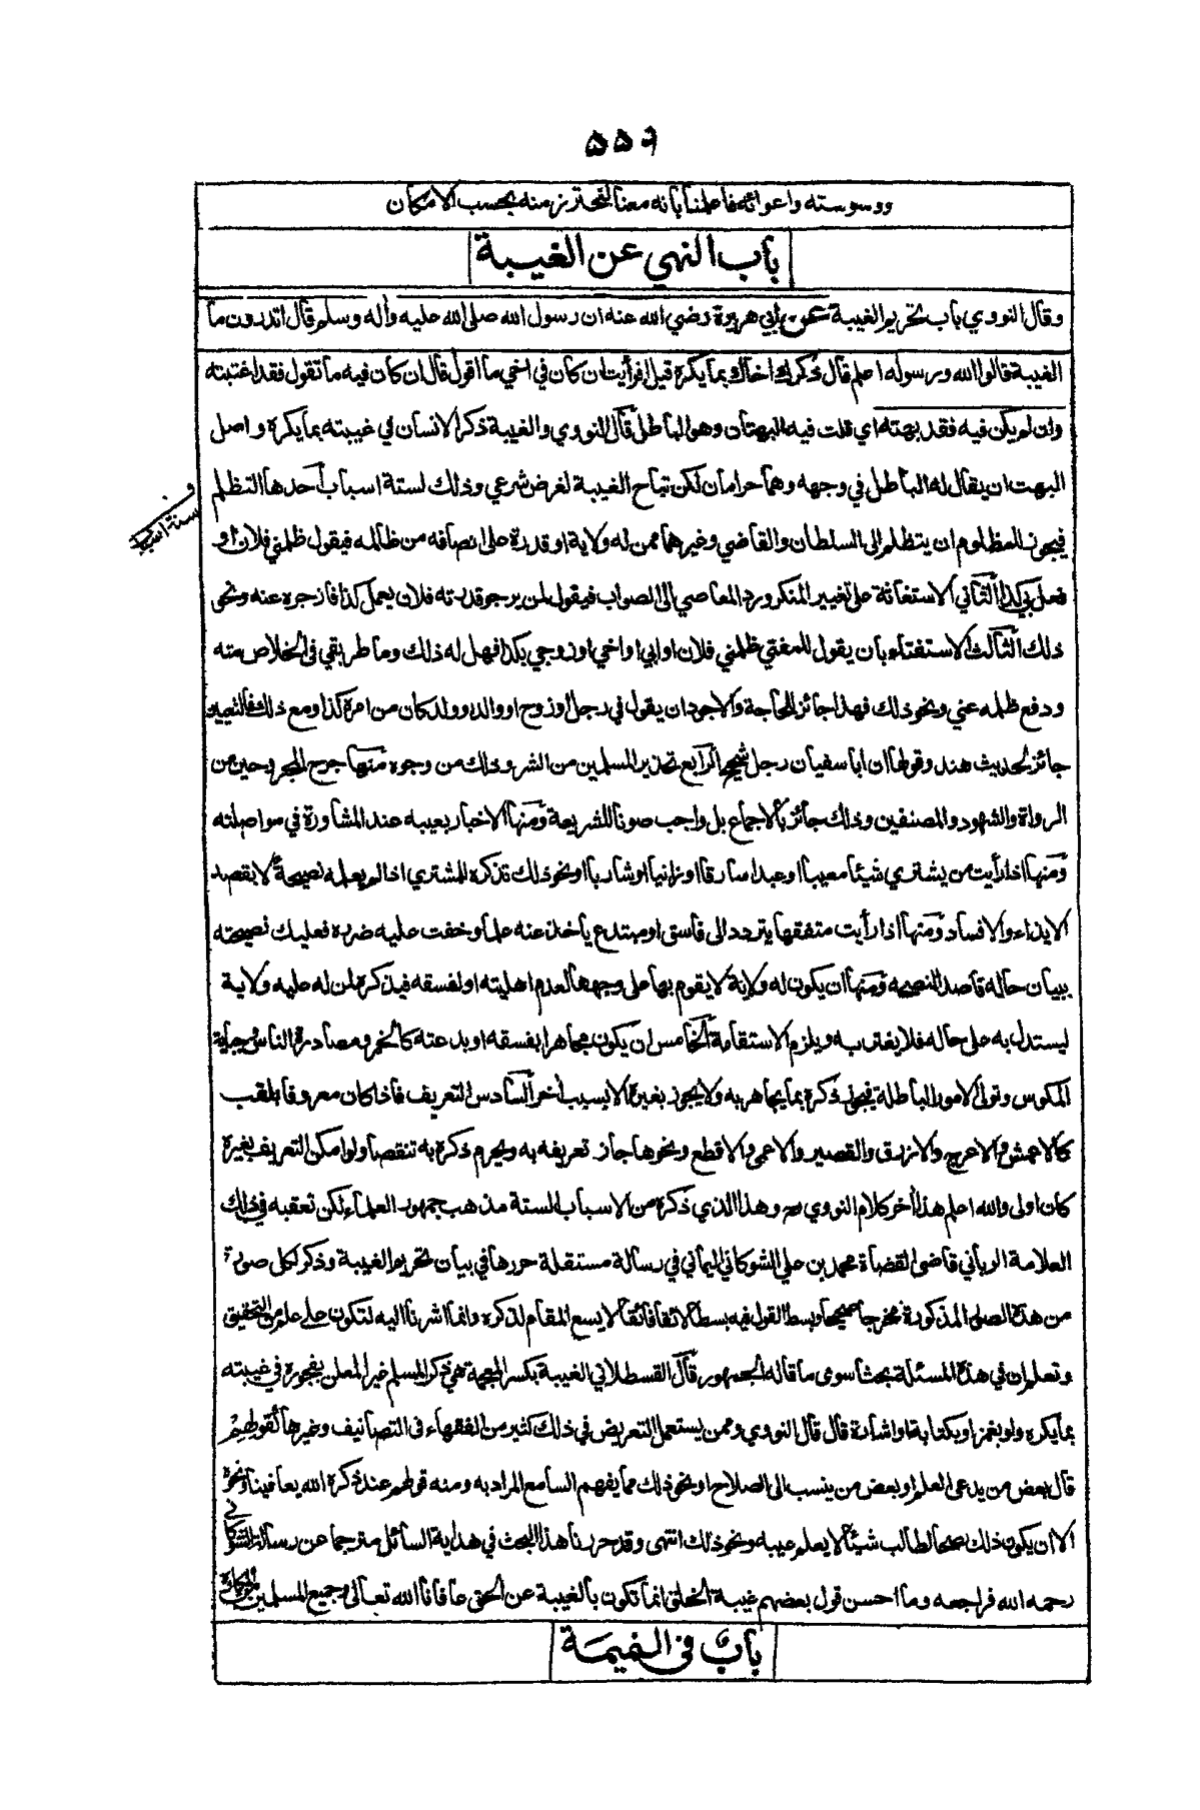 ٥٥٦
ووسوسته واعوائه فاعلمنا بانه معنا لنحترز منه بحسب الامكان
باب النهي عن الغيبة
وقال النووي باب تحريم الغيبة عن ابي هريرة رضي الله عنه ان رسول الله صلى الله عليه وآله وسلم قال اتدرون ما
الغيبة قالوا الله ورسوله اعلم قال ذكرك اخاك بما يكره قيل افرأيت ان كان في اخي ما اقول قال ان كان فيه ما تقول فقد اغتبته
وان لم يكن فيه فقد بهته اي قلت فيه البهتان وهو الباطل قال النووي والغيبة ذكر الانسان في غيبته بما يكره واصل
البهت ان يقال له الباطل في وجهه وهما حرامان لكن تباح الغيبة لغرض شرعي وذلك لستة اسباب احدها التظلم
فيجوز للمظلوم ان يتظلم الى السلطان والقاضي وغيرهما ممن له ولاية او قدرة على انصافه من ظالمه فيقول ظلمني فلان او
فعل بي كذا الثاني الاستغاثة على تغيير المنكر ورد المعاصي الى الصواب فيقول لمن يرجو قدرته فلان يعمل كذا فازجره عنه ونحو
ذلك الثالث الاستفتاء بان يقول للمفتي ظلمني فلان او ابي او اخي او زوجي بكذا فهل له ذلك وما طريقي في الخلاص منه
ودفع ظلمه عني ونحو ذلك فهذا جائز للحاجة والاجود ان يقول في رجل او زوج او والد وولد كان من امره كذا ومع ذلك فالتعيين
جائز لحديث هند وقولها ان ابا سفيان رجل شحيح الرابع تحذير المسلمين من الشر وذلك من وجوه منها جرح المجروحين من
الرواة والشهود والمصنفين وذلك جائز بالاجماع بل واجب صونا للشريعة ومنها الاخبار بعيبه عند المشاورة في مواصلته
ومنها اذا رأيت من يشتري شيئا معيبا او عبدا سارقا او زانيا او شاربا او نحو ذلك تذكره للمشتري اذا لم يعلمه نصيحة لا بقصد
الايذاء والافساد ومنها اذا رأيت متفقها يتردد الى فاسق او مبتدع ياخذ عنه علما وخفت عليه ضرره فعليك نصيحته
ببيان حاله قاصد النصيحه ومنها ان يكون له ولاية لا يقوم بها على وجهها لعدم اهليته او لفسقه فيذكره لمن له عليه ولاية
ليستدل به على حاله فلا يغتر به ويلزم الاستقامة الخامس ان يكون مجاهرا بفسقه او بدعته كالخمر ومصادرة الناس وجباية
المكوس وتولى الامور الباطلة فيجوز ذكره بما يجاهر به ولا يجوز بغيره الا بسبب اخر السادس التعريف فاذا كان معروفا بلقب
كالاعمش والاعرج والازرق والقصير والاعمى والاقطع ونحوها جاز تعريفه به ويحرم ذكره به تنقصا ولو امكن التعريف بغيره
كان اولى والله اعلم هذا اخر كلام النووي رح وهذا الذي ذكره من الاسباب الستة مذهب جمهور العلماء لكن تعقبه في ذلك
العلامة الرباني قاضى القضاة محمد بن علي الشوكاني اليماني في رسالة مستقلة حررها في بيان تحريم الغيبة وذكر لكل صورة
من هذه الصور المذكورة مخرجا صحيحا وبسط القول فيه بسطا لائقا فائقا لا يسع المقام لذكره وانما اشرنا اليه لتكون على علم من التحقيق
وتعلم ان في هذه المسئلة بحثا سوى ما قاله الجمهور قال القسطلاني الغيبة بكسر المعجمة هي ذكر المسلم غير المعلن بفجوره في غيبته
بما يكره ولو بغمز او بكتابة او اشارة قال قال النووي وممن يستعمل التعريض في ذلك كثير من الفقهاء في التصانيف وغيرها كقولهم
قال بعض من يدعى العلم او بعض من ينسب الى الصلاح او نحو ذلك مما يفهم السامع المراد به ومنه قولهم عند ذكره الله يعافينا ونحوه
الا ان يكون ذلك نصحا لطالب شيئا لا يعلم عيبه ونحو ذلك انتهى وقد حررنا هذا البحث في هداية السائل مترجما عن رسالة الشوكاني
رحمه الله فراجعه وما احسن قول بعضهم غيبة الخلق انما تكون بالغيبة عن الحق عافانا الله تعالى وجميع المسلمين
باب في النميمة